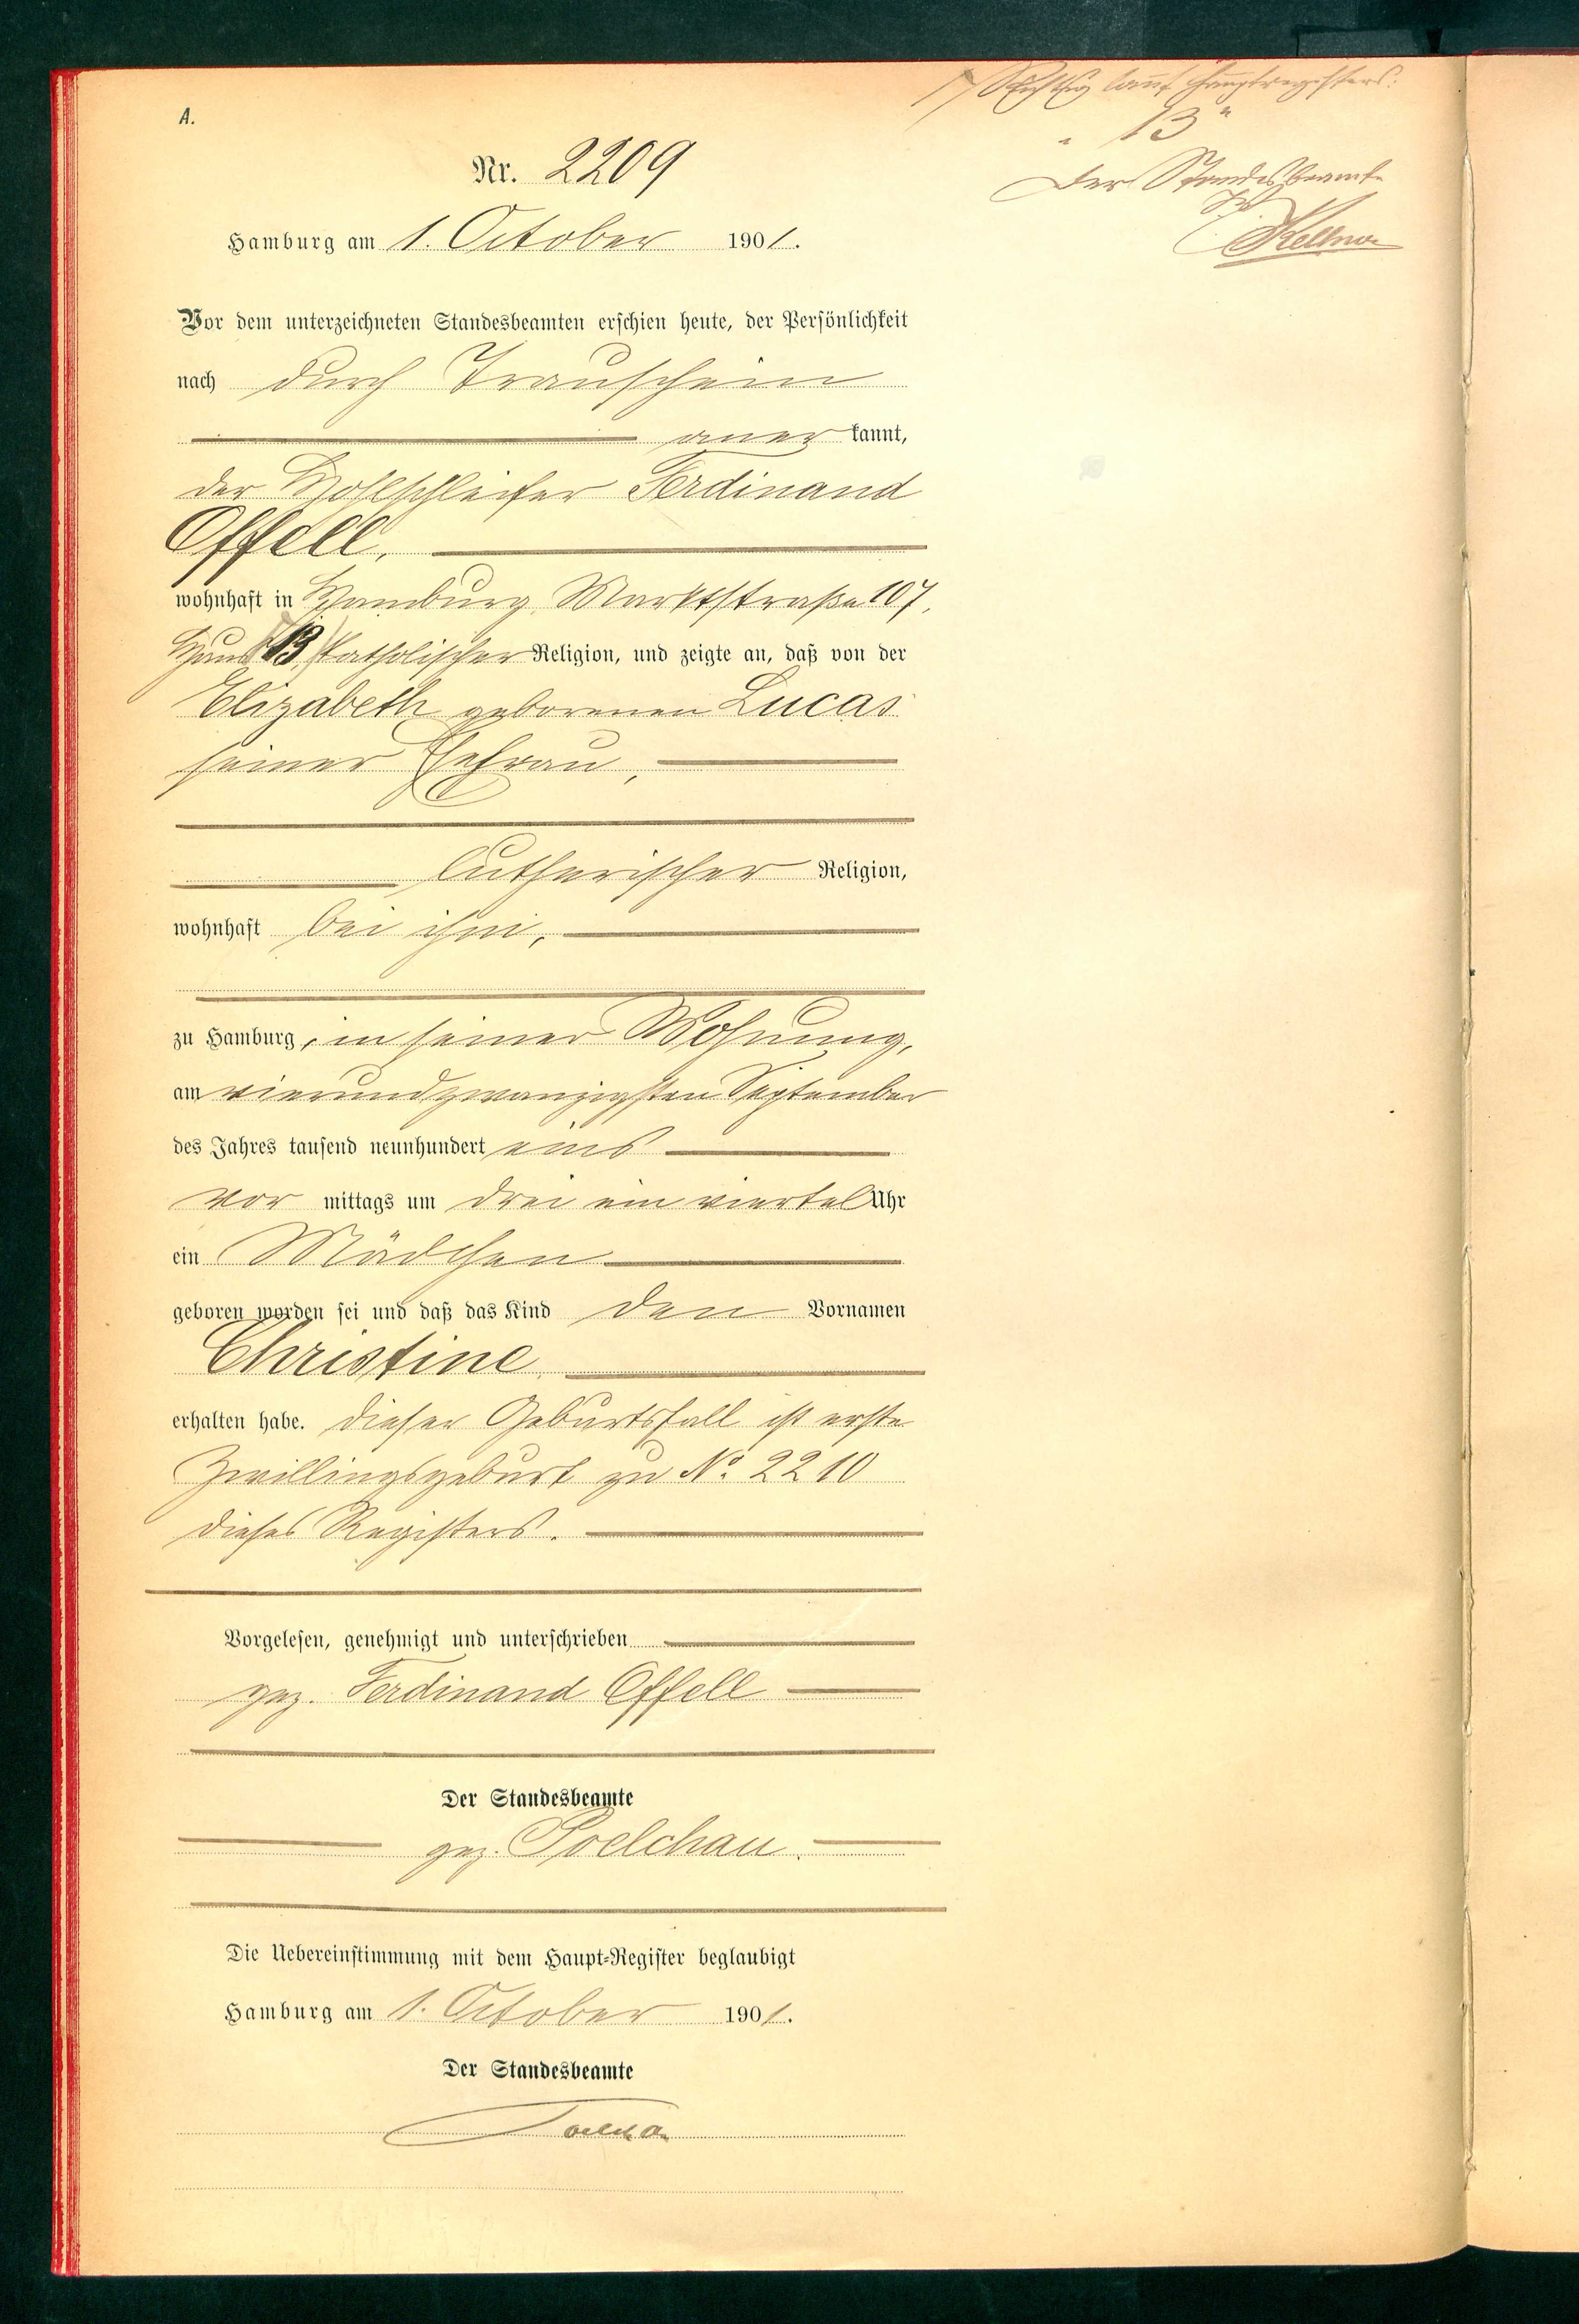 A.
Nr. 2209
Hamburg am 1. October 1901.
Vor dem unterzeichneten Standesbeamten erschien heute, der Persönlichkeit
nach durch Trauschein
anerkannt,
der Hohlschleifer Ferdinand
Offell,
wohnhaft in Hamburg, Marktstraße 107,
Haus 13, katholischer Religion, und zeigte an, daß von der
Elizabeth geborenen Lucas
seiner Ehefrau,
lutherischer Religion,
wohnhaft bei ihm,
zu Hamburg, in seiner Wohnung,
am vierundzwanzigsten September
des Jahres tausend neunhundert eins
vor mittags um drei ein viertel Uhr
ein Mädchen
geboren worden sei und daß das Kind den Vornamen
Christine
erhalten habe. Dieser Geburtsfall ist erste
Zwillingsgeburt zu No. 2210
dieses Registers.
Vorgelesen, genehmigt und unterschrieben
gez. Ferdinand Offell
Der Standesbeamte
gez. Poelchau.
Die Uebereinstimmung mit dem Haupt-Register beglaubigt
Hamburg am 1. October 1901.
Der Standesbeamte
Poelchau
1) Richtig laut Hauptregisters:
„ 13 “
Der Standesbeamte
Kellner